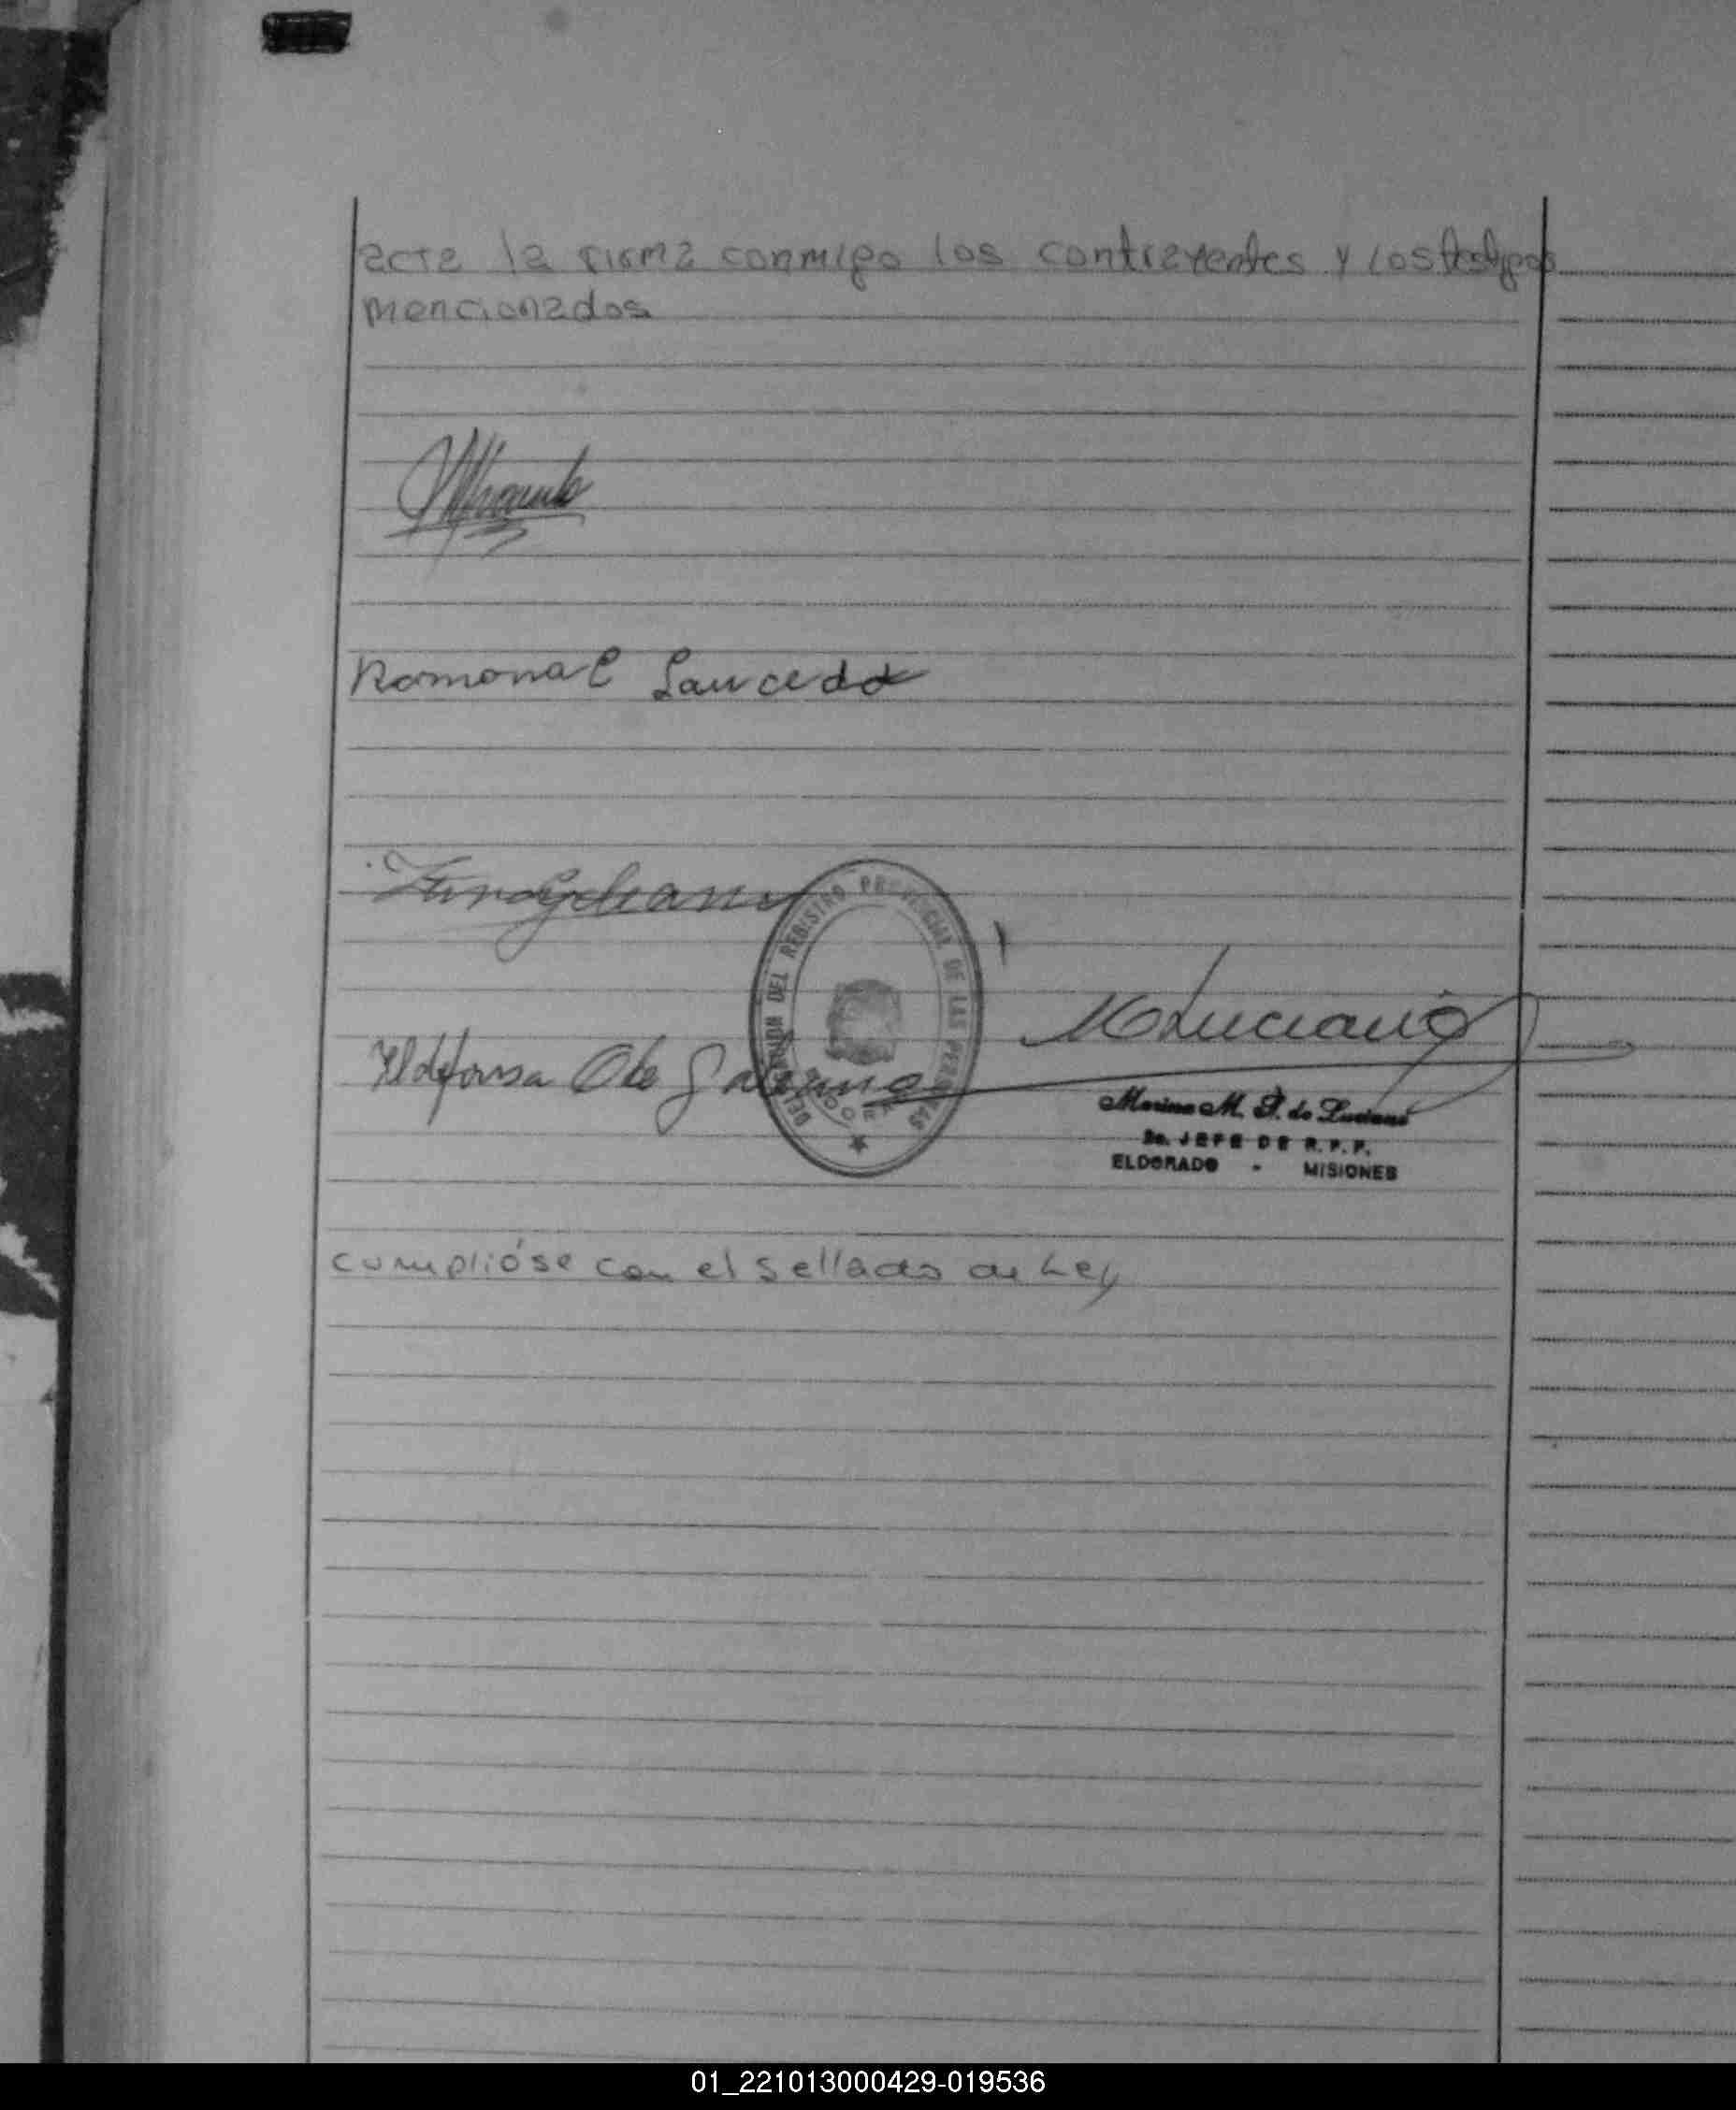 acta la firma conmigo los contrayentes y los testigos
mencionados
Ramona C Saucedo
DELEGACION DEL REGISTRO PROVINCIAL DE LAS PERSONAS
Ildefonsa O de
M Luciano
Marina M. P. de Luciano
JEFE DE R.P.P.
ELDORADO - MISIONES
cumplióse con el sellado de Ley
01_221013000429-019536